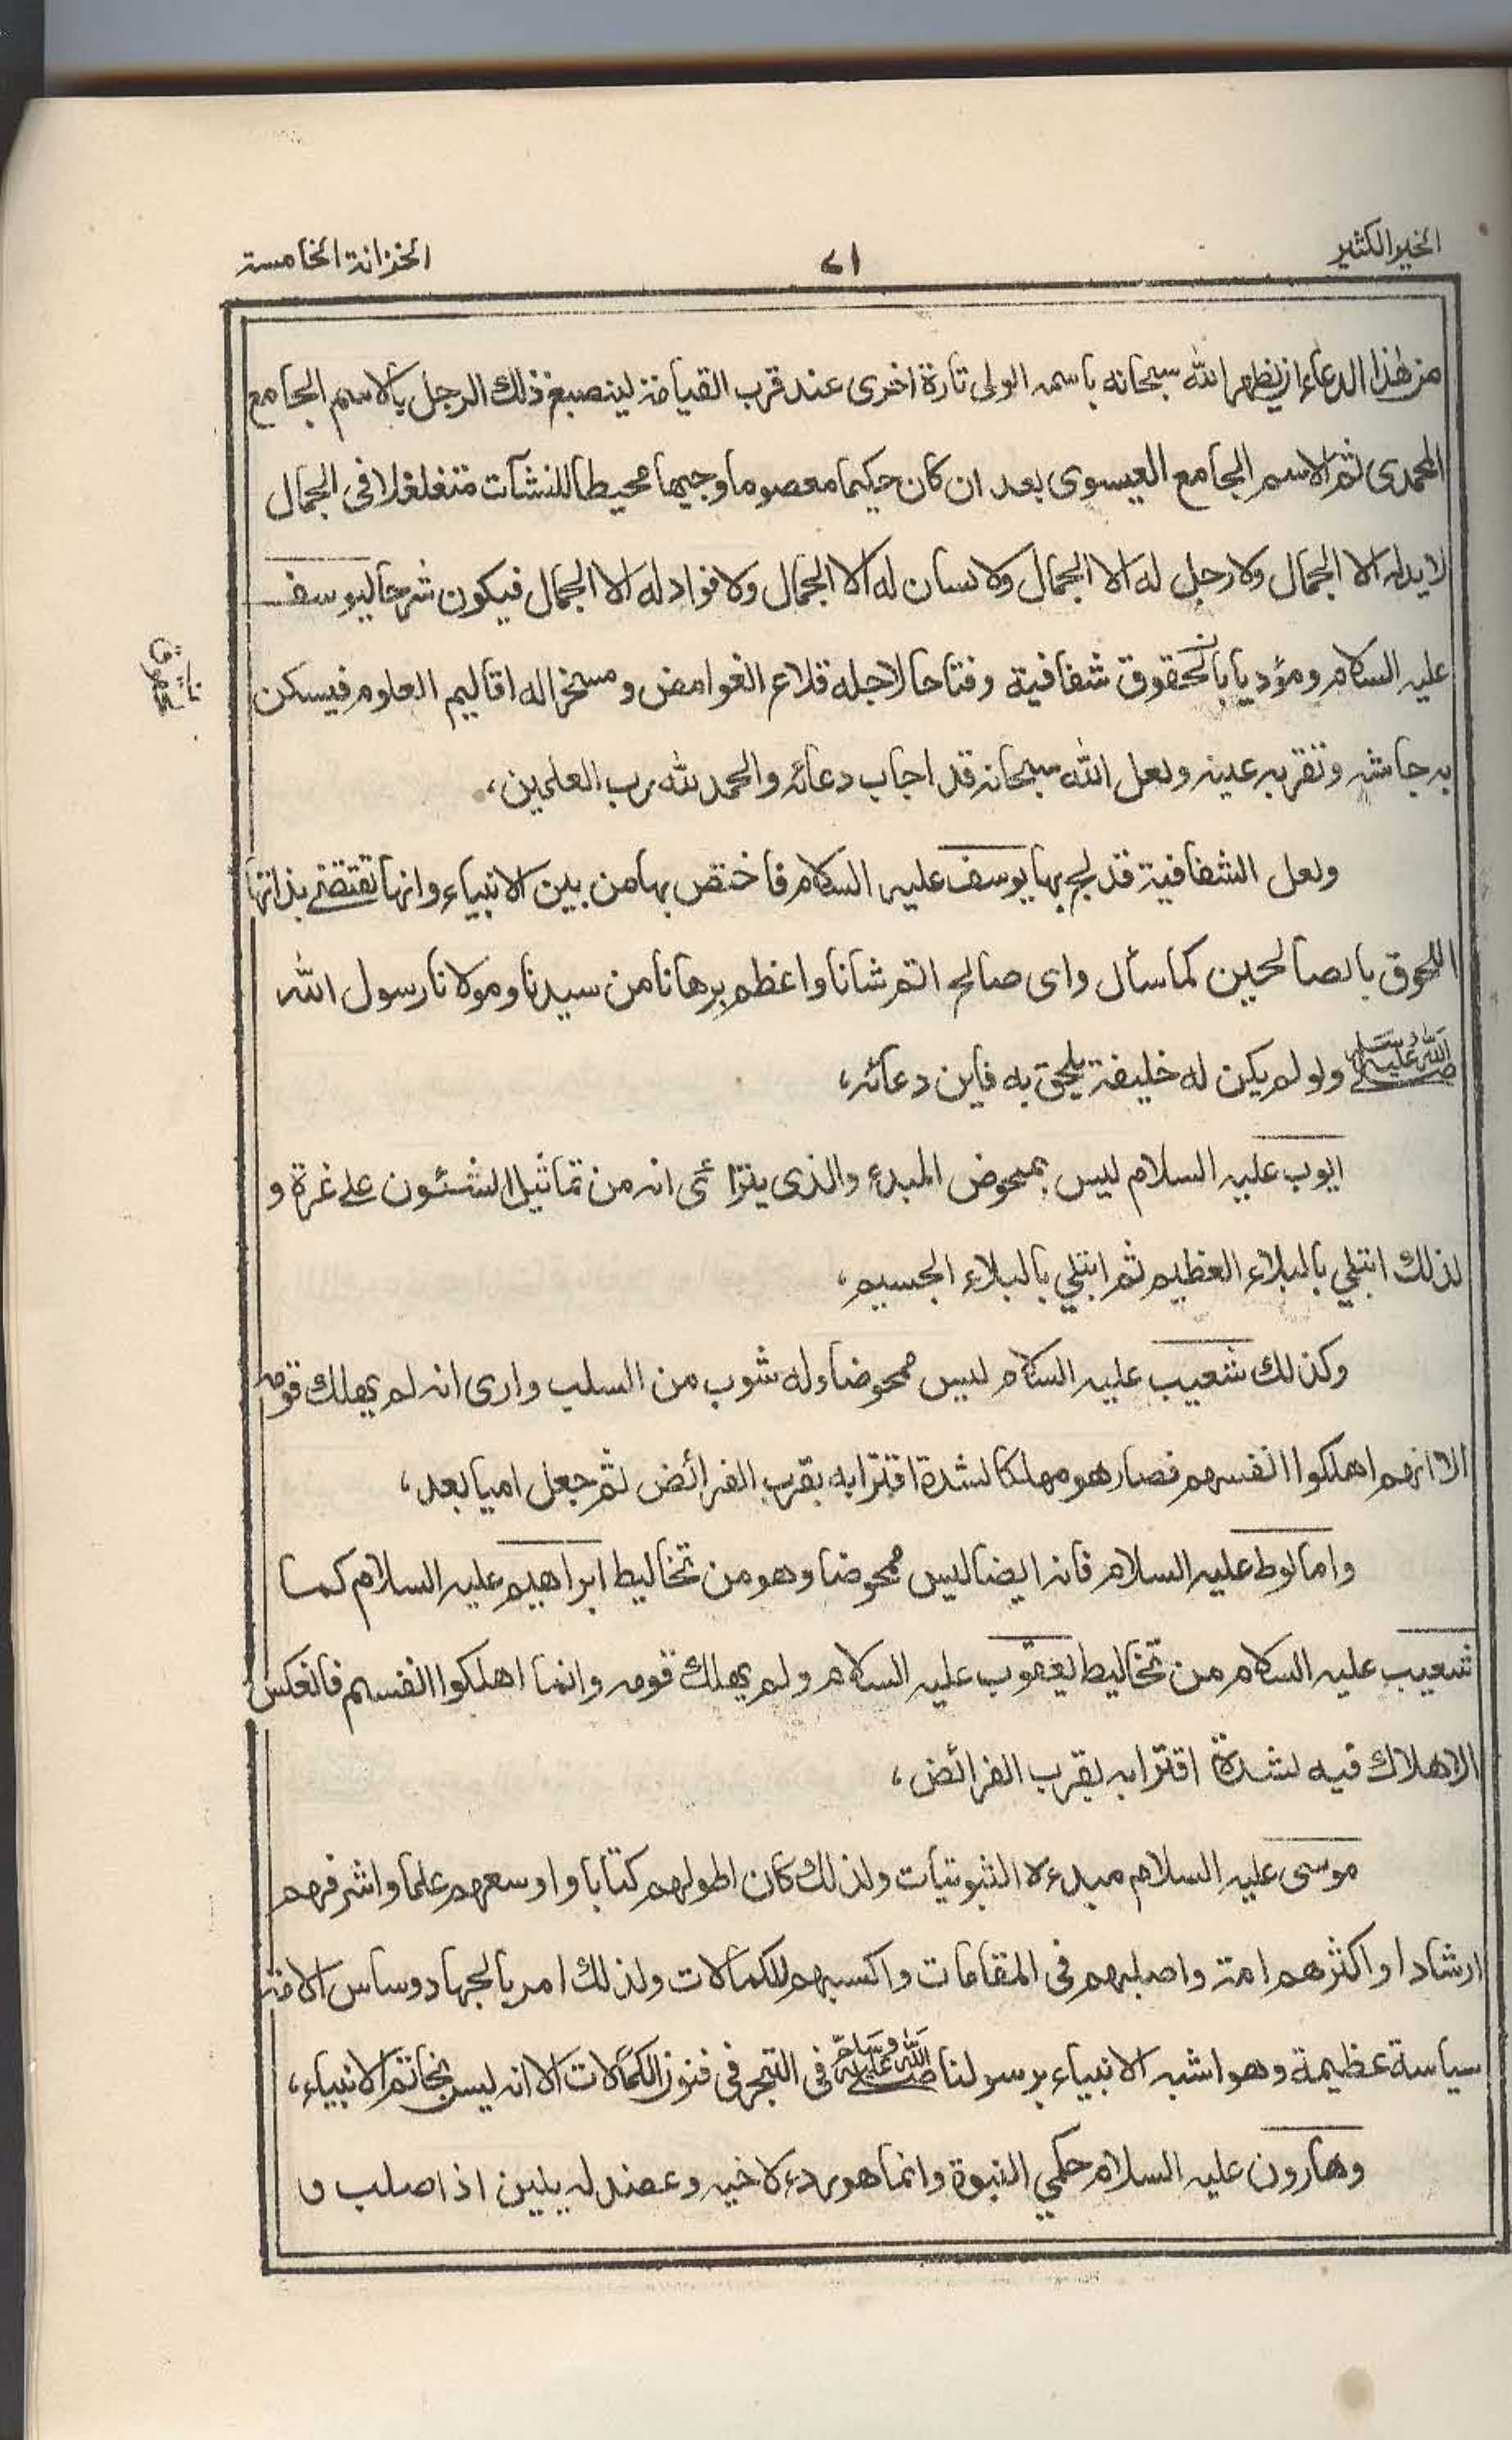 الخير الكثير
٧١
الخزانة الخامسة
من هذا الدعاء ان يظهر الله سبحانه باسمه الولى تارة اخرى عند قرب القيامة لينصبغ ذلك الرجل بالاسم الجامع
المحمدى ثم الاسم الجامع العيسوى بعد ان كان حكيما معصوما وجيها محيطا للنشآت متغلغلا فى الجمال
لا يد له الا الجمال ولا رجل له الا الجمال ولا لسان له الا الجمال ولا فواد له الا الجمال فيكون شرحا ليوسف
عليه السلام ومؤديا بالحقوق شفافية وفتاحا لاجله قلاع الغوامض ومسخرا له اقاليم العلوم فيسكن
به جاشه وتقر به عينه ولعل الله سبحانه قد اجاب دعائه والحمد لله رب العلمين،
ولعل الشفافية قد لج بها يوسف عليه السلام فاختص بها من بين الانبياء وانها تقتضى بذاتها
اللحوق بالصالحين كما سأل واى صالح اتم شانا واعظم برهانا من سيدنا ومولانا رسول الله
صلى الله عليه وسلم ولو لم يكن له خليفة يلحق به فاين دعائه،
ايوب عليه السلام ليس بمحوض المبدء والذى يترائى انه من تماثيل الشئون على غرة و
لذلك ابتلى بالبلاء العظيم ثم ابتلى بالبلاء الجسيم،
وكذلك شعيب عليه السلام ليس ممحوضا وله شوب من السلب وارى انه لم يهلك قومه
الا انهم اهلكوا انفسهم فصار هو مهلكا لشدة اقترابه بقرب الفرائض ثم جعل اميا بعد،
واما لوط عليه السلام فانه ايضا ليس ممحوضا وهو من تخاليط ابراهيم عليه السلام كما
شعيب عليه السلام من تخاليط يعقوب عليه السلام ولم يهلك قومه وانما اهلكوا انفسهم فانعكس
الاهلاك فيه لشدة اقترابه بقرب الفرائض،
موسى عليه السلام مبدءه الثبوتيات ولذلك كان اطولهم كتابا واوسعهم علما واشرفهم
ارشادا واكثرهم امة واصلبهم فى المقامات واكسبهم للكمالات ولذلك امر بالجهاد وساس الامة
سياسة عظيمة وهو اشبه الانبياء برسولنا صلى الله عليه وسلم فى التبحر فى فنون الكمالات الا انه ليس بخاتم الانبياء،
وهارون عليه السلام حكمي النبوة وانما هو ردء لاخيه وعضد له يلين اذا صلب و